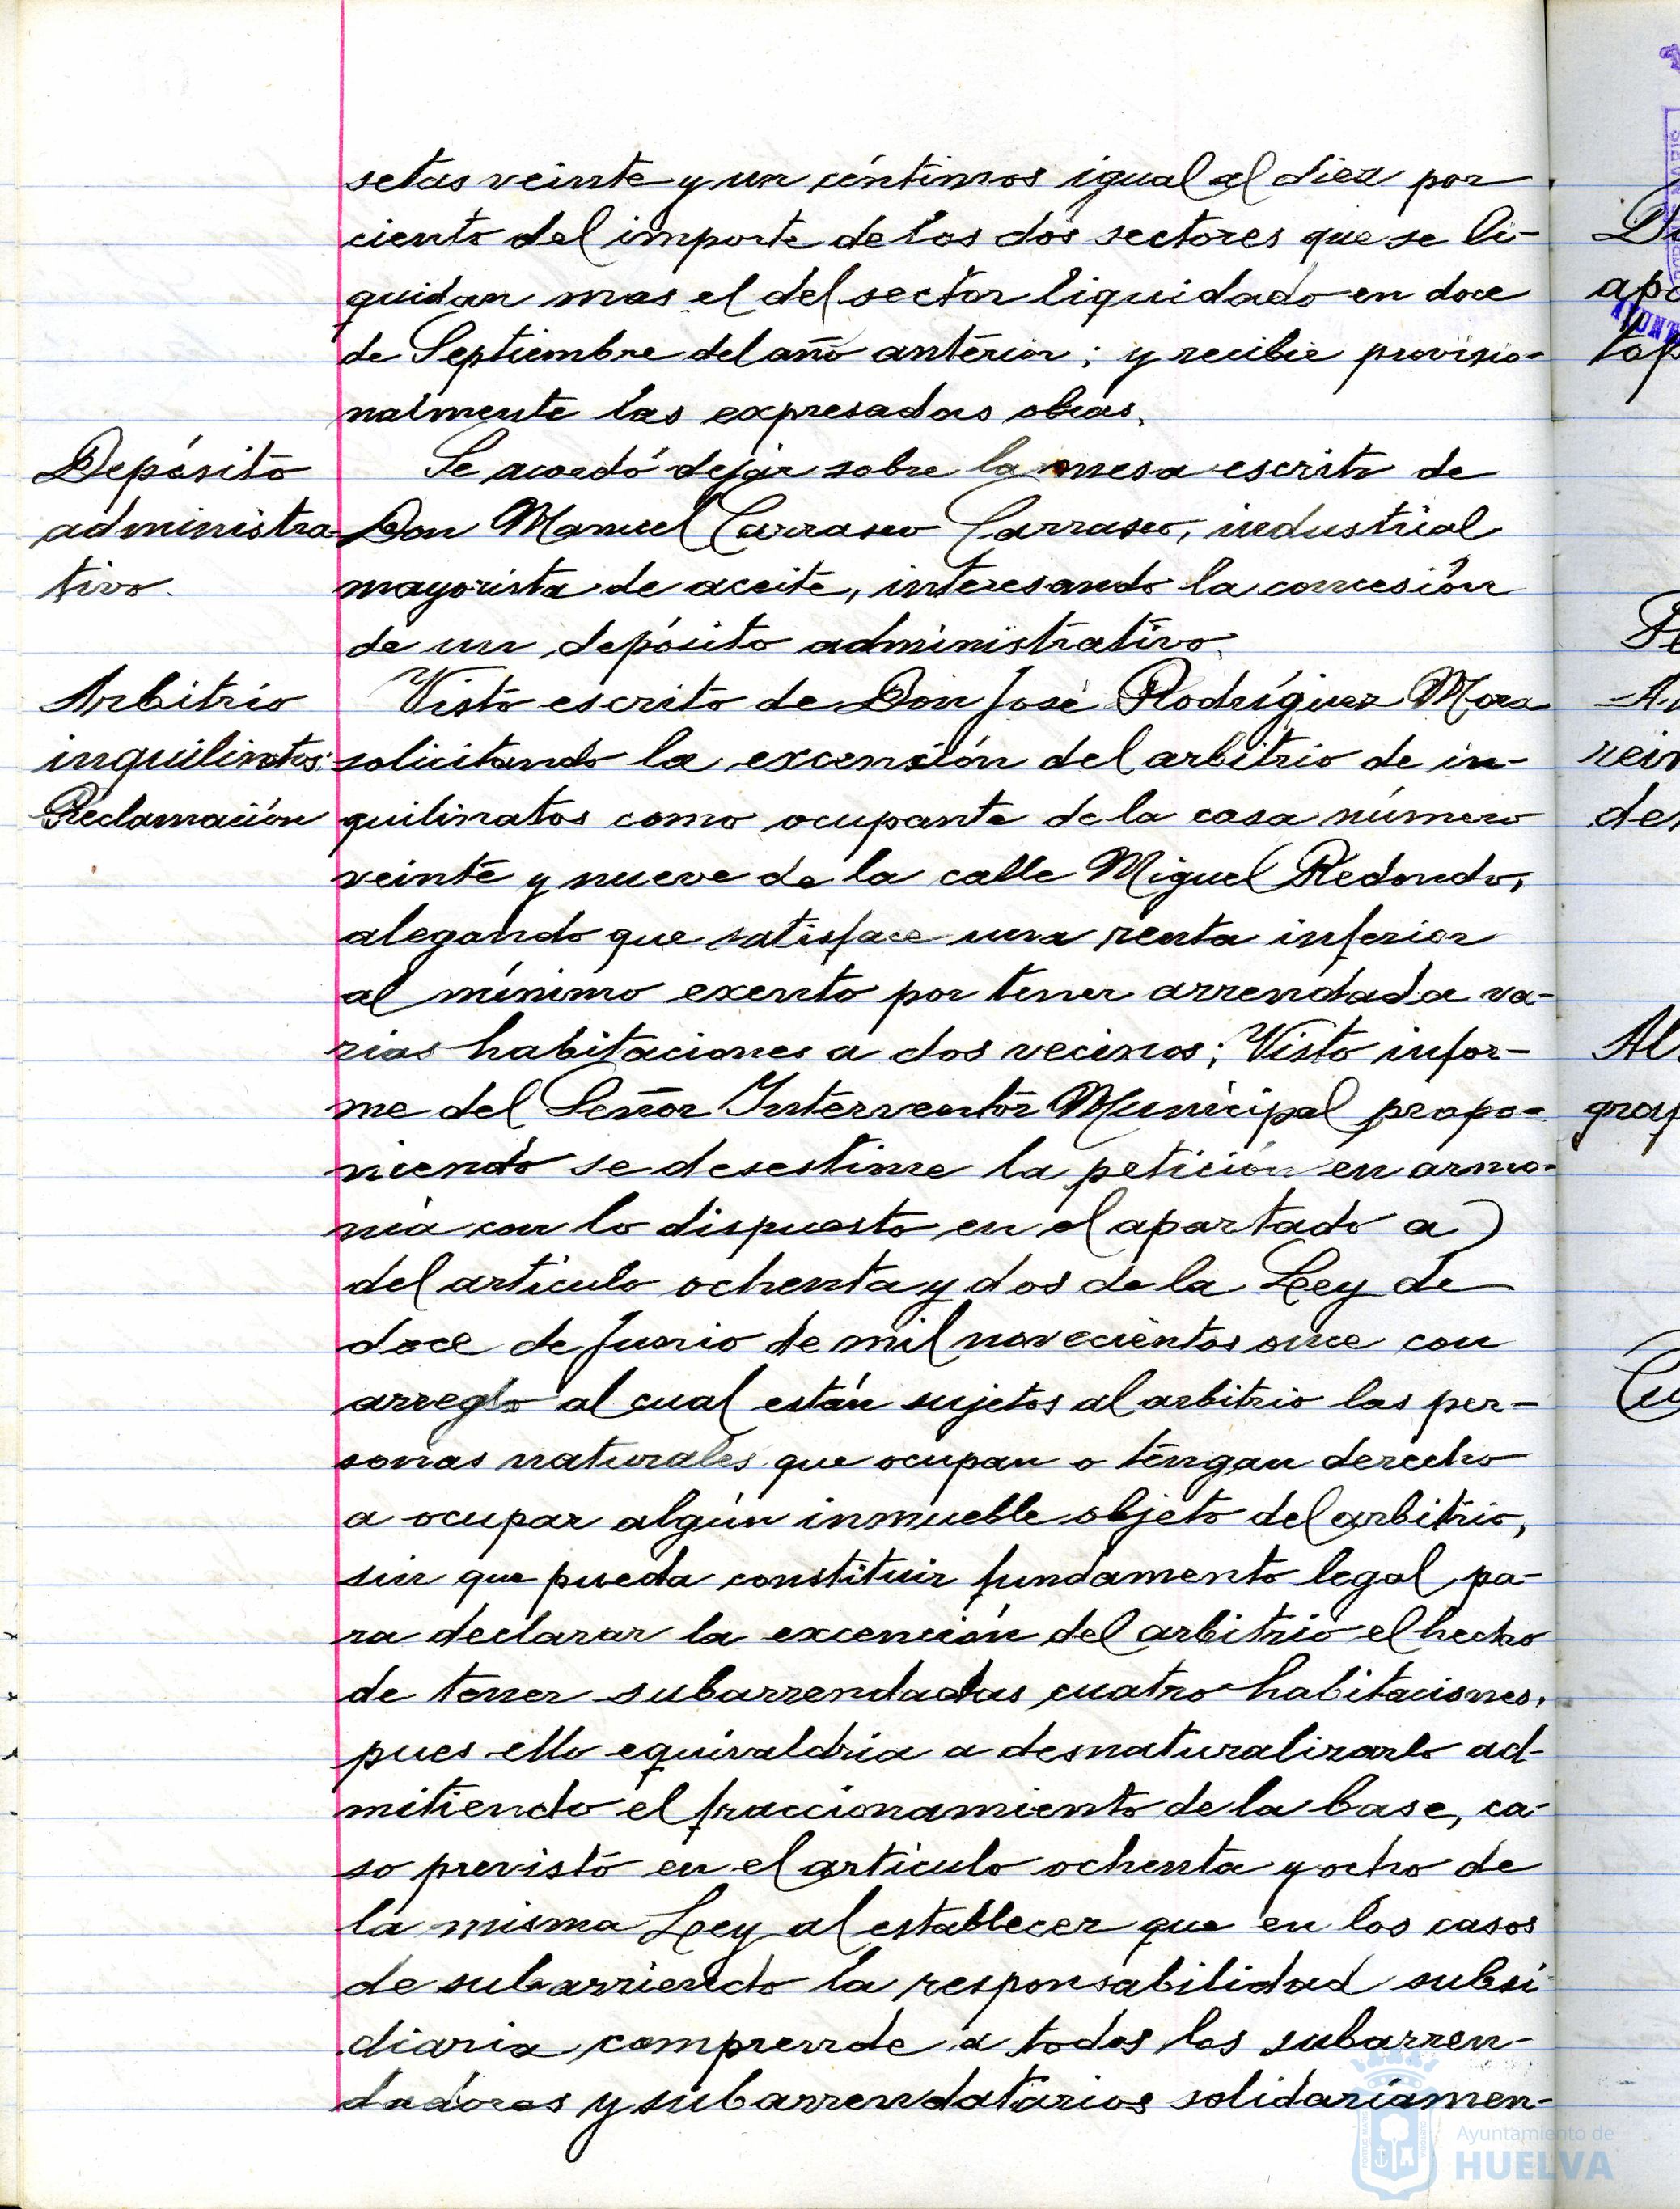 setas veinte y un céntimos igual al diez por
ciento del importe de los dos sectores que se li-
quidan mas el del sector liquidado en doce
de Septiembre del año anterior; y recibir provisio-
nalmente las expresadas obras.
Depósito
administra-
tivo.
Se acordó dejar sobre la mesa escrito de
Don Manuel Carrasco Carrasco, industrial
mayorista de aceite, interesando la concesión
de un depósito administrativo.
Arbitrio
inquilinatos:
Reclamación
Visto escrito de Don José Rodríguez Mora
solicitando la excensión del arbitrio de in-
quilinatos como ocupante de la casa número
veinte y nueve de la calle Miguel Redondo,
alegando que satisface una renta inferior
al mínimo exento por tener arrendada va-
rias habitaciones a dos vecinos; Visto infor-
me del Señor Interventor Municipal propo-
niendo se desestime la petición en armo-
nia con lo dispuesto en el apartado a)
del articulo ochenta y dos de la Ley de
doce de Junio de mil novecientos once con
arreglo al cual están sujetos al arbitrio las per-
sonas naturales que ocupan o téngan derecho
a ocupar algún inmueble objeto del arbitrio,
sin que pueda constituir fundamento legal pa-
ra declarar la excención del arbitrio el hecho
de tener subarrendadas cuatro habitaciones,
pues ello equivaldria a desnaturalizarlo ad-
mitiendo el fraccionamiento de la base, ca-
so previsto en el articulo ochenta y ocho de
la misma Ley al establecer que en los casos
de subarriendo la responsabilidad subsi
diaria comprende a todos los subarren-
dadores y subarrendatarios solidariamen-
Ayuntamiento de
HUELVA